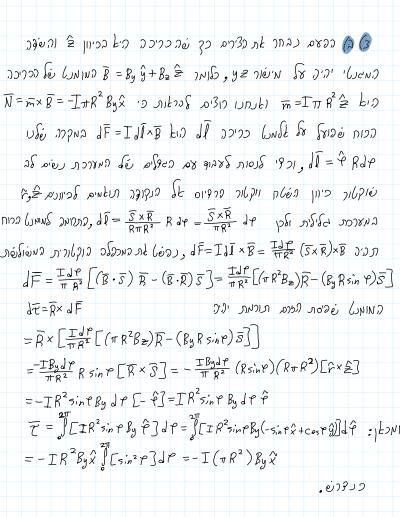 ③ ② הפעם נבחר את הצירים כך שהכריכה היא בכיוון ẑ והשדה
המגנטי יהיה על מישור yz, כלומר B̅ = By ŷ + Bz ẑ המומנט של הכריכה
היא m̅ = IπR² ẑ ואנחנו רוצים להראות כי N̅ = m̅ × B̅ = -IπR² By x̂
הכוח שפועל על אלמנט כריכה dl̅ הוא dF̅ = I dl̅ × B̅ במקרה שלנו
dl̅ = φ̂ R dφ, וכדי לנסות לעבוד עם הגדלים של המערכת נשים לב
שוקטור כיוון השטח ווקטור הרדיוס אל הנקודה תואמים לכיוונים r̂, ẑ
במערכת גלילית ולכן dl̅ = (S̅ × R̅)/(RπR²) R dφ = (S̅ × R̅)/(πR²) dφ, התרומה למומנט הכוח
תהיה dF̅ = I dl̅ × B̅ = (I dφ)/(πR²) (S̅ × R̅) × B̅, נפשט את המכפלה הוקטורית המשולשת
dF̅ = (I dφ)/(πR²) [(B̅·S̅) R̅ - (B̅·R̅) S̅] = (I dφ)/(πR²) [(πR² Bz) R̅ - (By R sinφ) S̅]
המומנט שפיסת הזרם תורמת יהיה dτ̅ = R̅ × dF̅
= R̅ × [(I dφ)/(πR²) [(πR² Bz) R̅ - (By R sinφ) S̅]]
= (-I By dφ)/(πR²) R sinφ [R̅ × S̅] = - (I By dφ)/(πR²) (R sinφ)(RπR²) [r̂ × ẑ]
= -IR² sinφ By dφ [-φ̂] = IR² sinφ By dφ φ̂
ומכאן: τ̅ = ∫₀^2π [IR² sinφ By φ̂] dφ = ∫₀^2π [IR² sinφ By (-sinφ x̂ + cosφ ŷ)] dφ
= -IR² By x̂ ∫₀^2π [sin²φ] dφ = -I(πR²) By x̂
כנדרש.